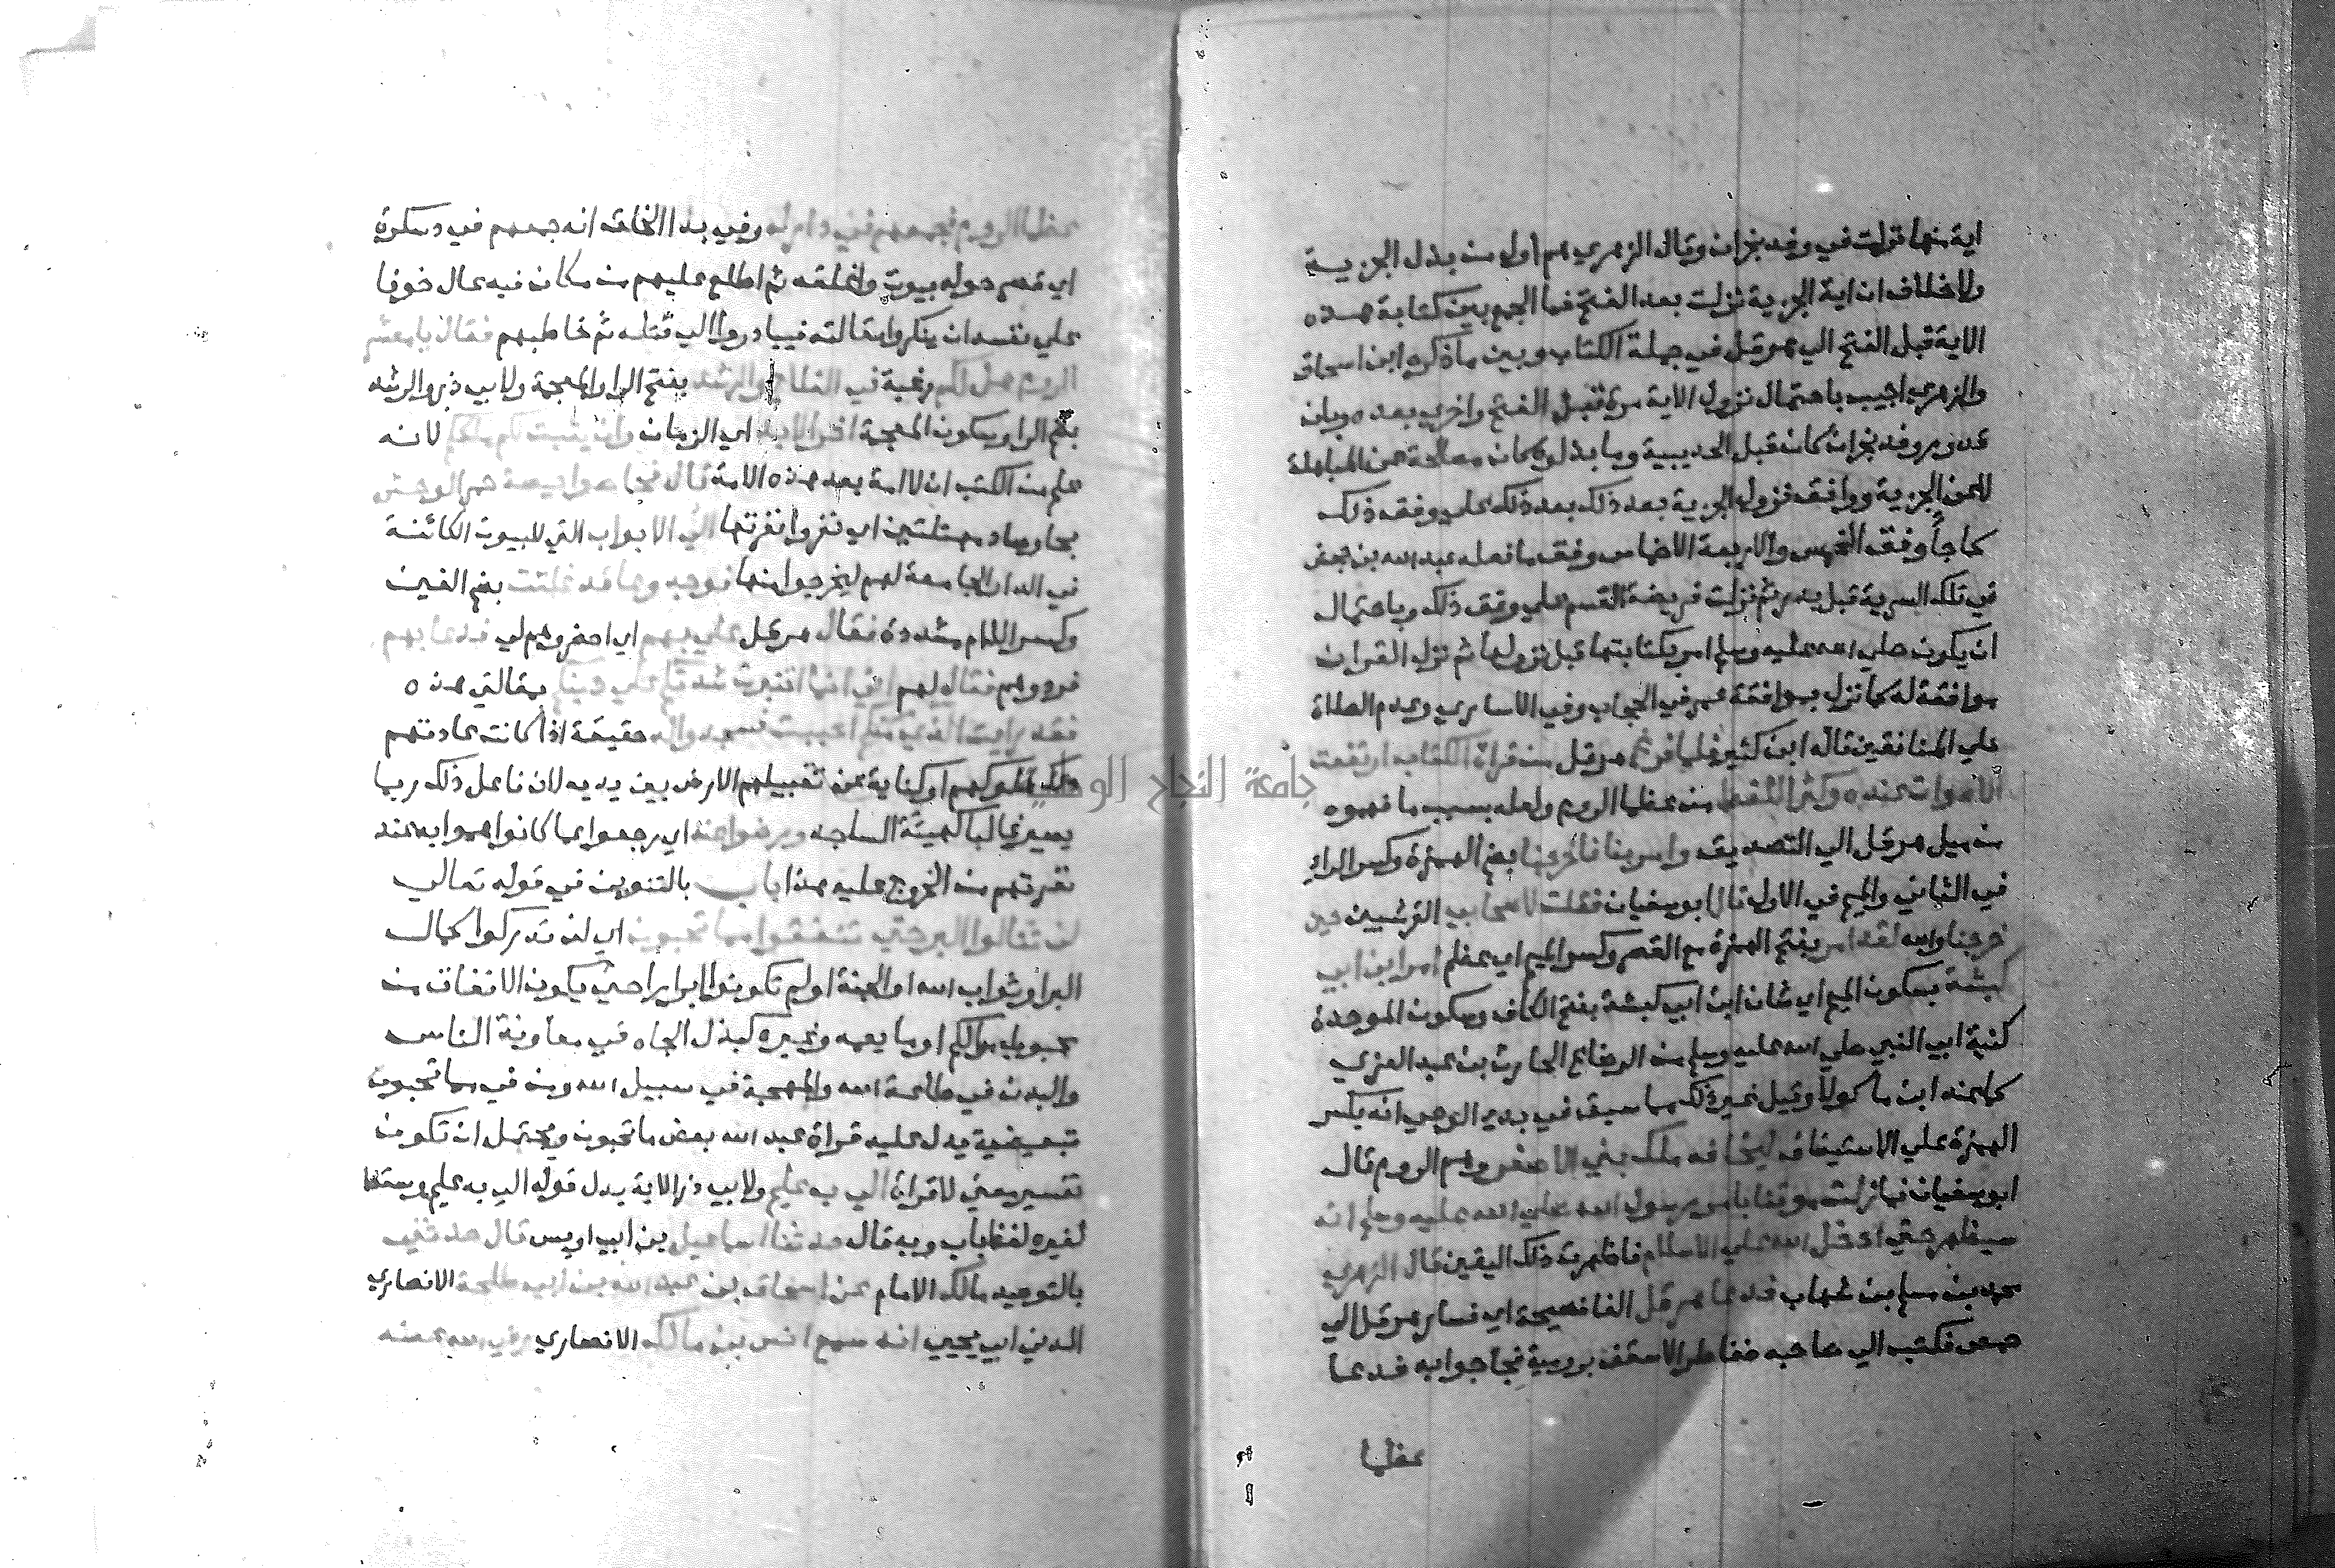 اية منها نزلت في وفد نجران وقال الزهري هم اول من بذل الجزية
ولا خلاف ان اية الجزية نزلت بعد الفتح فما الجمع بين كتابة هذه
الاية قبل الفتح الي هرقل في جملة الكتاب وبين ما ذكره ابن اسحاق
والزهري اجيب باحتمال نزول الاية مرة قبل الفتح واخري بعده وبان
قدوم وفد نجران كان قبل الحديبية وما بذلوه كان مصالحة عن المباهلة
لا عن الجزية ووافق نزول الجزية بعد ذلك بعد ذلك علي وفق ذلك
كما جاء وفق الخمس والاربعة الاخماس وفق ما فعله عبد الله بن جحش
في تلك السرية قبل بدر ثم نزلت فريضة القسم علي وفق ذلك وباحتمال
ان يكون صلي الله عليه وسلم امر بكتابتها قبل نزولها ثم نزل القران
موافقة له كما نزل بموافقة عمر في الحجاب وفي الاساري وعدم الصلاة
علي المنافقين قاله ابن كثير فلما فرغ هرقل من قراة الكتاب ارتفعت
الاصوات عنده وكثر اللغط من عظما الروم ولعله بسبب ما فهموه
من ميل هرقل الي التصديق وامر بنا فاخرجنا بضم الهمزة وكسر الراء
في الثاني والميم في الاول قال ابو سفيان فقلت لاصحابي القرشيين حين
خرجنا والله لقد امر بفتح الهمزة مع القصر وكسر الميم اي عظم امر ابن ابي
كبشة بسكون الميم اي شان ابن ابي كبشة بفتح الكاف وسكون الموحدة
كنية ابي النبي صلي الله عليه وسلم من الرضاع الحارث بن عبد العزي
كما عند ابن ماكولا وقيل غير ذلك مما سبق في بدء الوحي انه بكسر
الهمزة علي الاستيناف ليخافه ملك بني الاصفر وهم الروم قال
ابو سفيان فما زلت موقنا بامر رسول الله صلي الله عليه وسلم انه
سيظهر حتي ادخل الله علي الاسلام فاظهرت ذلك اليقين قال الزهري
محمد بن مسلم بن شهاب فدعا هرقل الفا فصيحة اي فسار هرقل الي
حمص فكتب الي صاحبه ضغاطر الاسقف برومية فجا جوابه فدعا
عظما
عظما الروم فجمعهم في دار له وفي بدا الخلق انه جمعهم في دسكرة
اي قصر حوله بيوت واغلقه ثم اطلع عليهم من مكان فيه عال خوفا
علي نفسه ان ينكروا مقالته فيبادروا الي قتله ثم خاطبهم فقال يا معشر
الروم هل لكم رغبة في الفلاح والرشد بفتح الراء والمعجمة ولابي ذر والرشد
بضم الرا وسكون المعجمة اخر الابد اي الزمان وان يثبت لكم ملككم لانه
علم من الكتب ان لا امة بعد هذه الامة قال فحاصوا حيصة حمر الوحش
بحا وصاد مهملتين اي نفروا نفرتها الي الابواب التي للبيوت الكائنة
في الدار الجامعة لهم ليخرجوا منها فوجدوها قد غلقت بضم الغين
وكسر اللام مشددة فقال هرقل علي بهم اي احضروهم لي فدعا بهم
فردوهم فقال لهم اني انما اختبرت شدتكم علي دينكم بمقالتي هذه
فقد رايت الذي منكم احببت فسجدوا له حقيقة اذا كانت عادتهم
ذلك لملوكهم او كناية عن تقبيلهم الارض بين يديه لان فاعل ذلك ربما
يصير غالبا كهيئة الساجد ورضوا عنه اي رجعوا عما كانوا هموا به عند
نفرتهم من الخروج عليه هذا باب بالتنوين في قوله تعالي
لن تنالوا البر حتي تنفقوا مما تحبون اي لن تدركوا كمال
البر او ثواب الله او الجنة او لم تكونوا ابرارا حتي يكون الانفاق من
محبوب اموالكم او ما يعمه وغيره كبذل الجاه في معاونة الناس
والبدن في طاعة الله والمهجة في سبيل الله ومن في مما تحبون
تبعيضية يدل عليه قراة عبد الله بعض ما تحبون ويحتمل ان تكون
تفسير معني لا قراة الي به عليم ولابي ذر الاية بدل قوله الي به عليم وسقط
لغيره لفظ باب وبه قال حدثنا اسماعيل بن ابي اويس قال حدثني
بالتوحيد مالك الامام عن اسحاق بن عبد الله بن ابي طلحة الانصاري
المدني ابي يحيي انه سمع انس بن مالك الانصاري رضي الله عنه
جامعة النجاح الوطنية